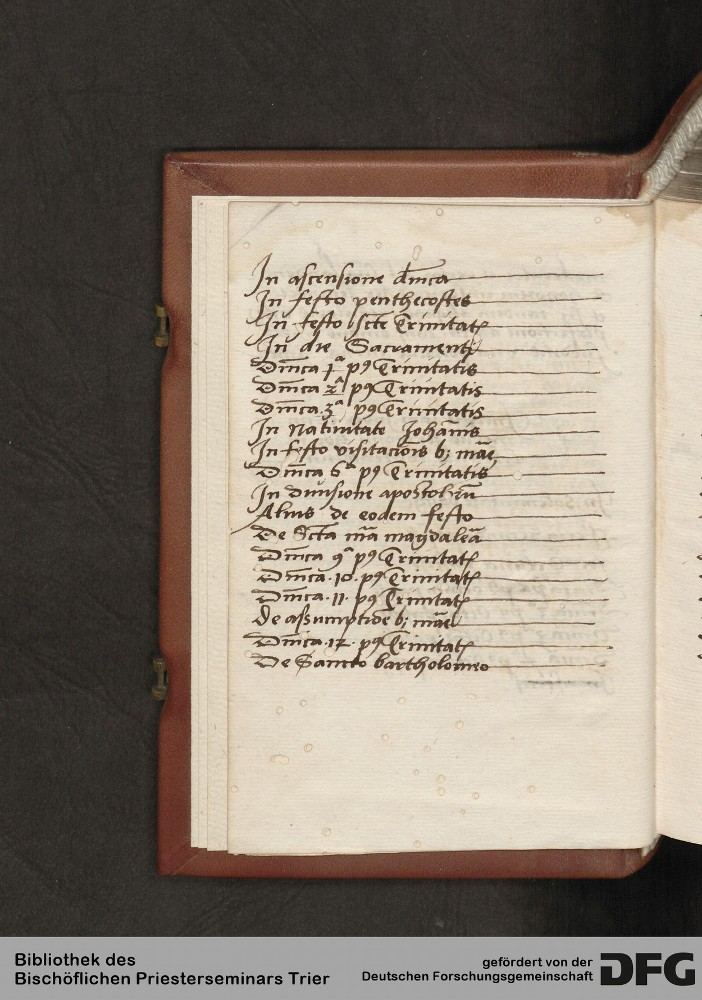 In ascensione dm̄ca
In festo penthecostes
In festo scte Trinitatꝭ
In die Sacramentꝭ
Dm̄ca 1ᵃ pꝰ Trinitatis
Dm̄ca 2ᵃ pꝰ Trinitatis
Dm̄ca .3ᵃ pꝰ Trinitatis
In Natiuitate Johānis
In festo visitacōis bꝫ māe
Dm̄ca 6ᵃ pꝰ Trinitatis
In diuisione apostolorū
Alius de eodem festo
De Scta mā magdalēa
Dm̄ca 9ᵃ pꝰ Trinitatꝭ
Dm̄ca .10. pꝰ Trinitatꝭ
Dm̄ca .11. pꝰ Trinitatꝭ
de assumptiōe bꝫ māe
Dm̄ca .12. pꝰ Trinitatꝭ
De Sancto bartholomeo
Bibliothek des
Bischöflichen Priesterseminars Trier
gefördert von der
Deutschen Forschungsgemeinschaft
DFG